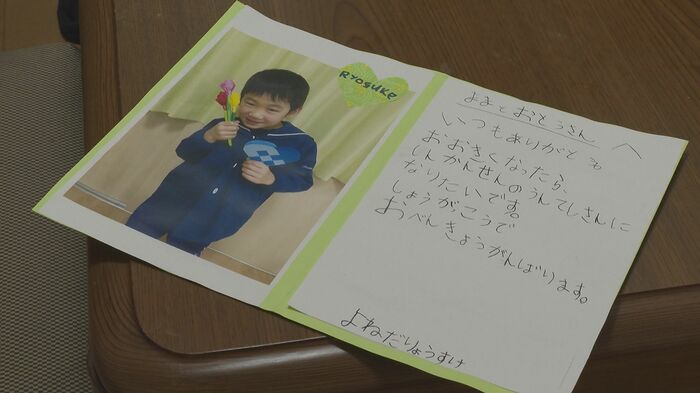 RYOSUKE
よまとおとうさんへ
いつもありがとも
おおきくなったら、
しんかんせんのうんてしさんに
なりたいです。
しょうがっこうで
おべんきょうがんばります。
よねだりょうすけ